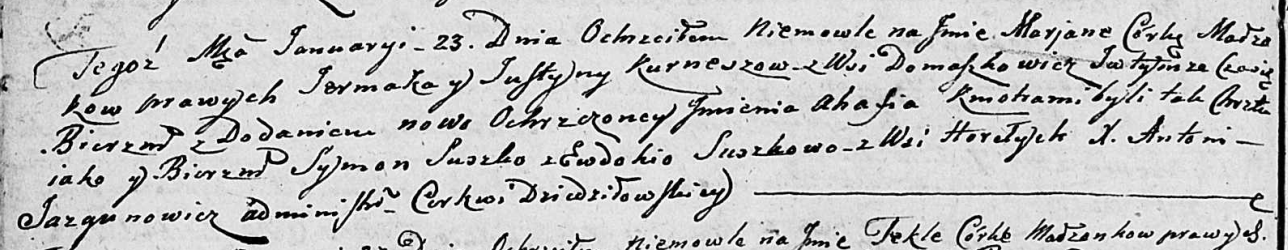 Tegoż Mca Januaryi 23. Dnia Ochrzciłem Niemowle na Jmie Marjane Corkę Małżo
kow prawych Jermaka y Justyny Kurneszow z Wsi Domaszkowicz Iw tymże Czasię
Bierzm z Dodaniem nowo Ochrzczoney Jmienia Ahafia Kmotrami byli tak Chrztu
iako y Bierzm Symon Suszko z Ewdokio Suszkowo z Wsi Horełych X. Antoni
Jazgunowicz administr Cerkwi Dziedziłowskiey
Dnia Ochrzciłem Niemowle na Jmie Tekle Corkę Małżonkow prawych